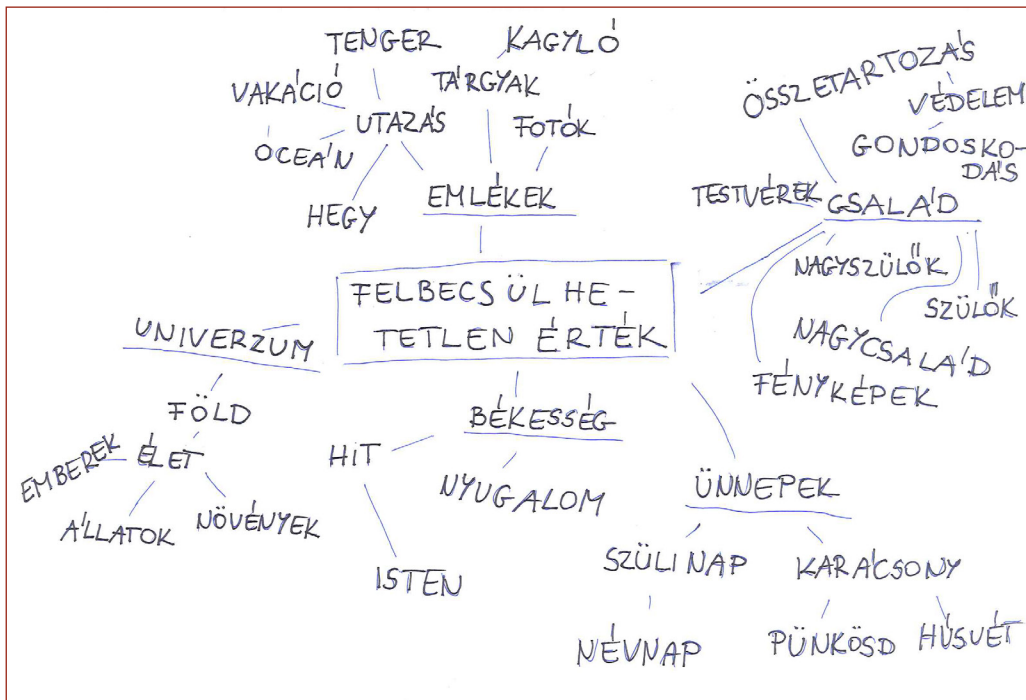 TENGER
KAGYLÓ
VAKÁCIÓ
TÁRGYAK
UTAZÁS
FOTÓK
ÓCEÁN
HEGY
EMLÉKEK
ÖSSZETARTOZÁS
VÉDELEM
GONDOSKO-
DÁS
TESTVÉREK
CSALÁD
NAGYSZÜLŐK
SZÜLŐK
NAGYCSALÁD
FÉNYKÉPEK
FELBECSÜLHE-
TETLEN ÉRTÉK
UNIVERZUM
FÖLD
EMBEREK
ÉLET
ÁLLATOK
NÖVÉNYEK
BÉKESSÉG
HIT
NYUGALOM
ISTEN
ÜNNEPEK
SZÜLINAP
KARÁCSONY
NÉVNAP
PÜNKÖSD
HÚSVÉT